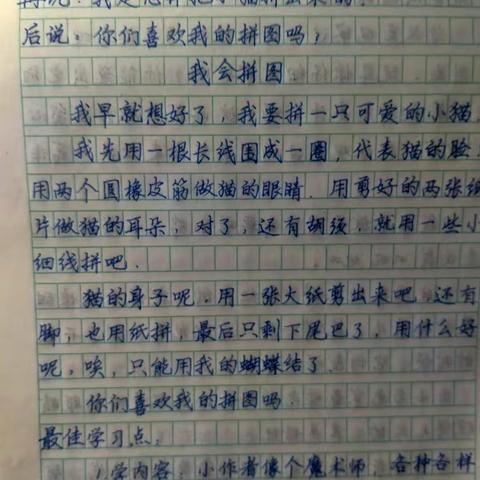 再说：我是怎样把小猫拼出来的？
后说：你们喜欢我的拼图吗？
我会拼图
我早就想好了，我要拼一只可爱的小猫。
我先用一根长线围成一圈，代表猫的脸，
用两个圆橡皮筋做猫的眼睛．用剪好的两张纸
片做猫的耳朵，对了，还有胡须，就用一些小
细线拼吧．
猫的身子呢．用一张大纸剪出来吧，还有
脚，也用纸拼，最后只剩下尾巴了，用什么好
呢，唉，只能用我的蝴蝶结了．
你们喜欢我的拼图吗．
最佳学习点：
1.学内容：小作者像个魔术师，各种各样